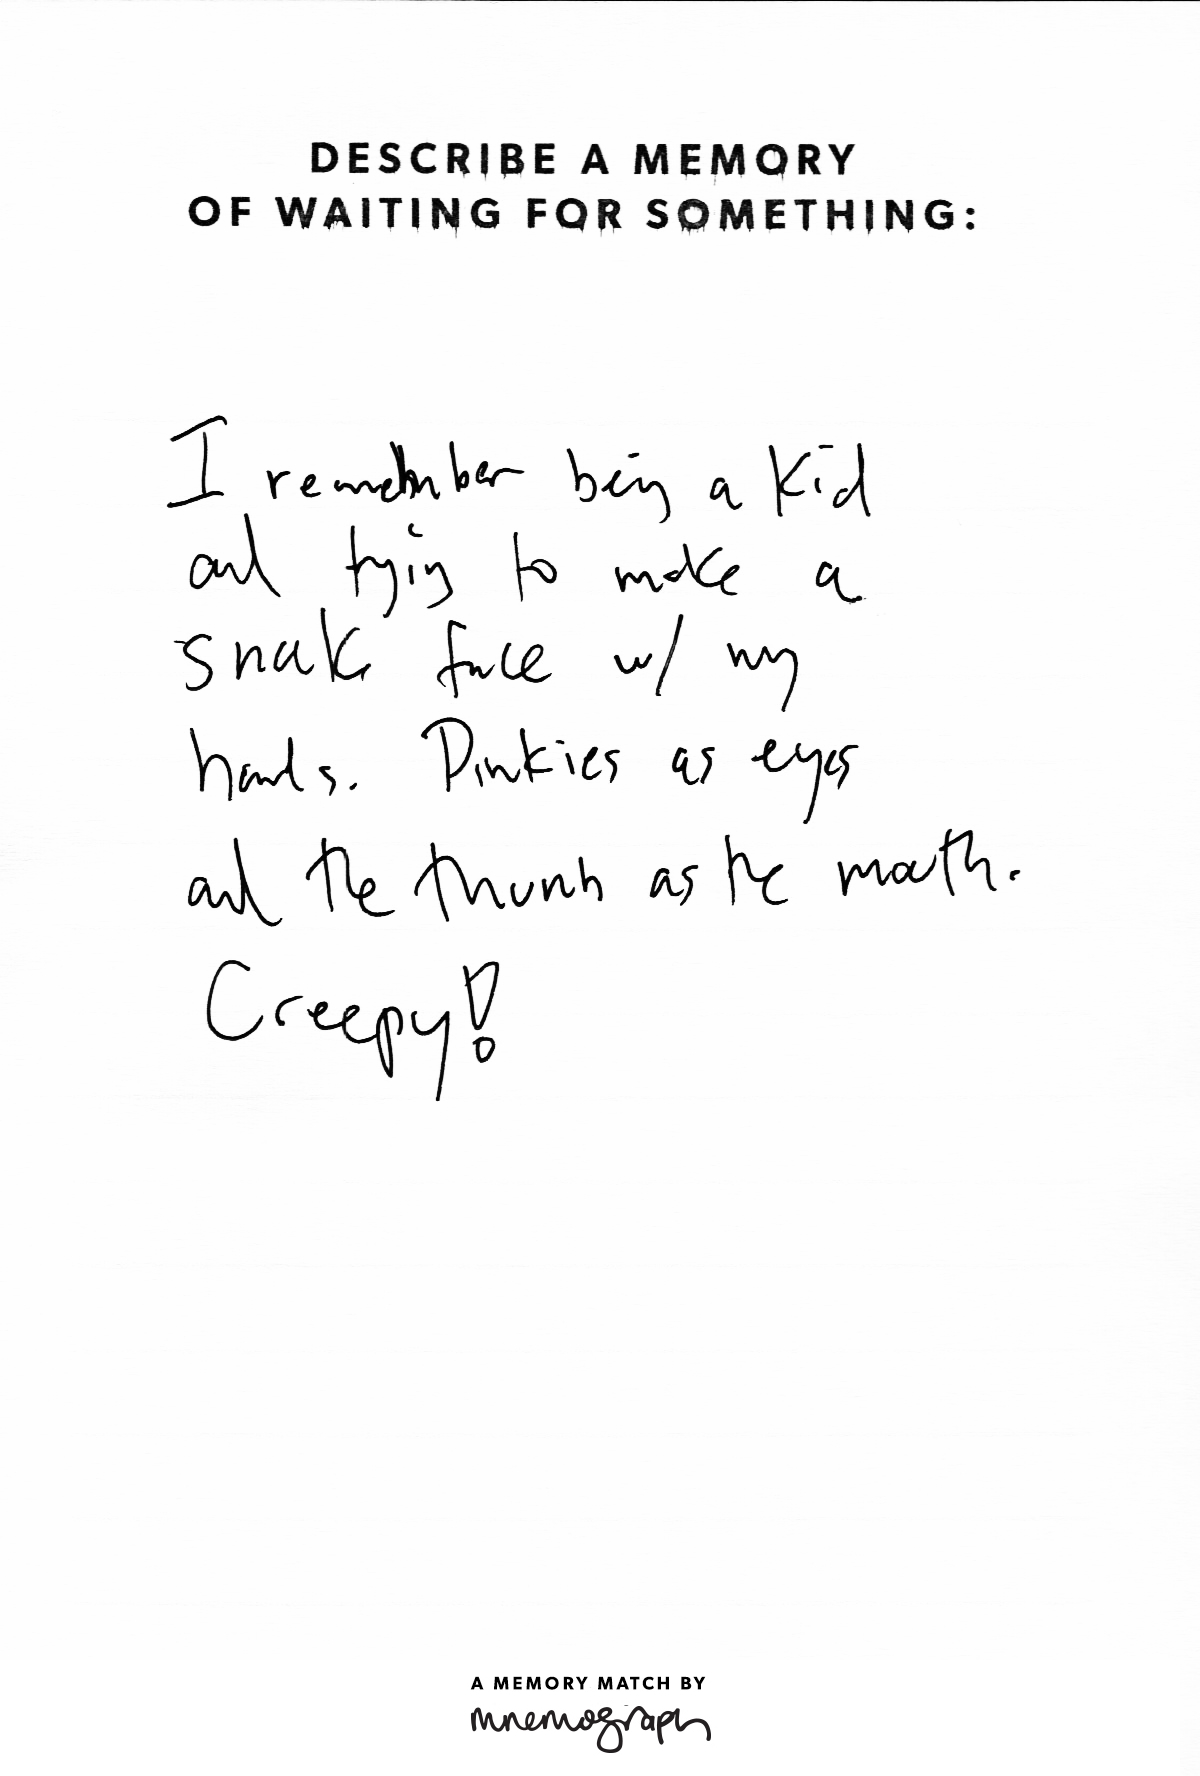 DESCRIBE A MEMORY
OF WAITING FOR SOMETHING:
I remember being a kid
and trying to make a
snake face w/ my
hands. Pinkies as eyes
and the thumb as the mouth.
Creepy!
A MEMORY MATCH BY
mnemograph